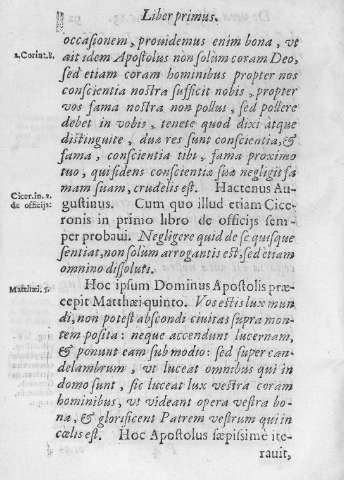 Liber primus.
occasionem, prouidemus enim bona, vt
2.Corint.8. ait idem Apostolus non solum coram Deo,
sed etiam coram hominibus propter nos
conscientia nostra sufficit nobis, propter
vos fama nostra non pollus, sed pollere
debet in vobis, tenete quod dixi atque
distinguite, duæ res sunt conscientia, &
fama, conscientia tibi, fama proximo
tuo, qui fidens conscientiæ suæ negligit fa
mam suam, crudelis est. Hactenus Au-
Cicer.in.1. gustinus. Cum quo illud etiam Cice-
de officijs: ronis in primo libro de officijs sem-
per probaui. Negligere quid de se quisque
sentiat, non solum arrogantis est, sed etiam
omnino dissoluti.
Matthæi. 5. Hoc ipsum Dominus Apostolis præ-
cepit Matthæi quinto. Vos estis lux mun
di, non potest abscondi ciuitas supra mon-
tem posita: neque accendunt lucernam,
& ponunt eam sub modio: sed super can-
delambrum, vt luceat omnibus qui in
domo sunt, sic luceat lux vestra coram
hominibus, vt videant opera vestra bo-
na, & glorificent Patrem vestrum qui in
cœlis est. Hoc Apostolus sæpissime ite-
rauit,